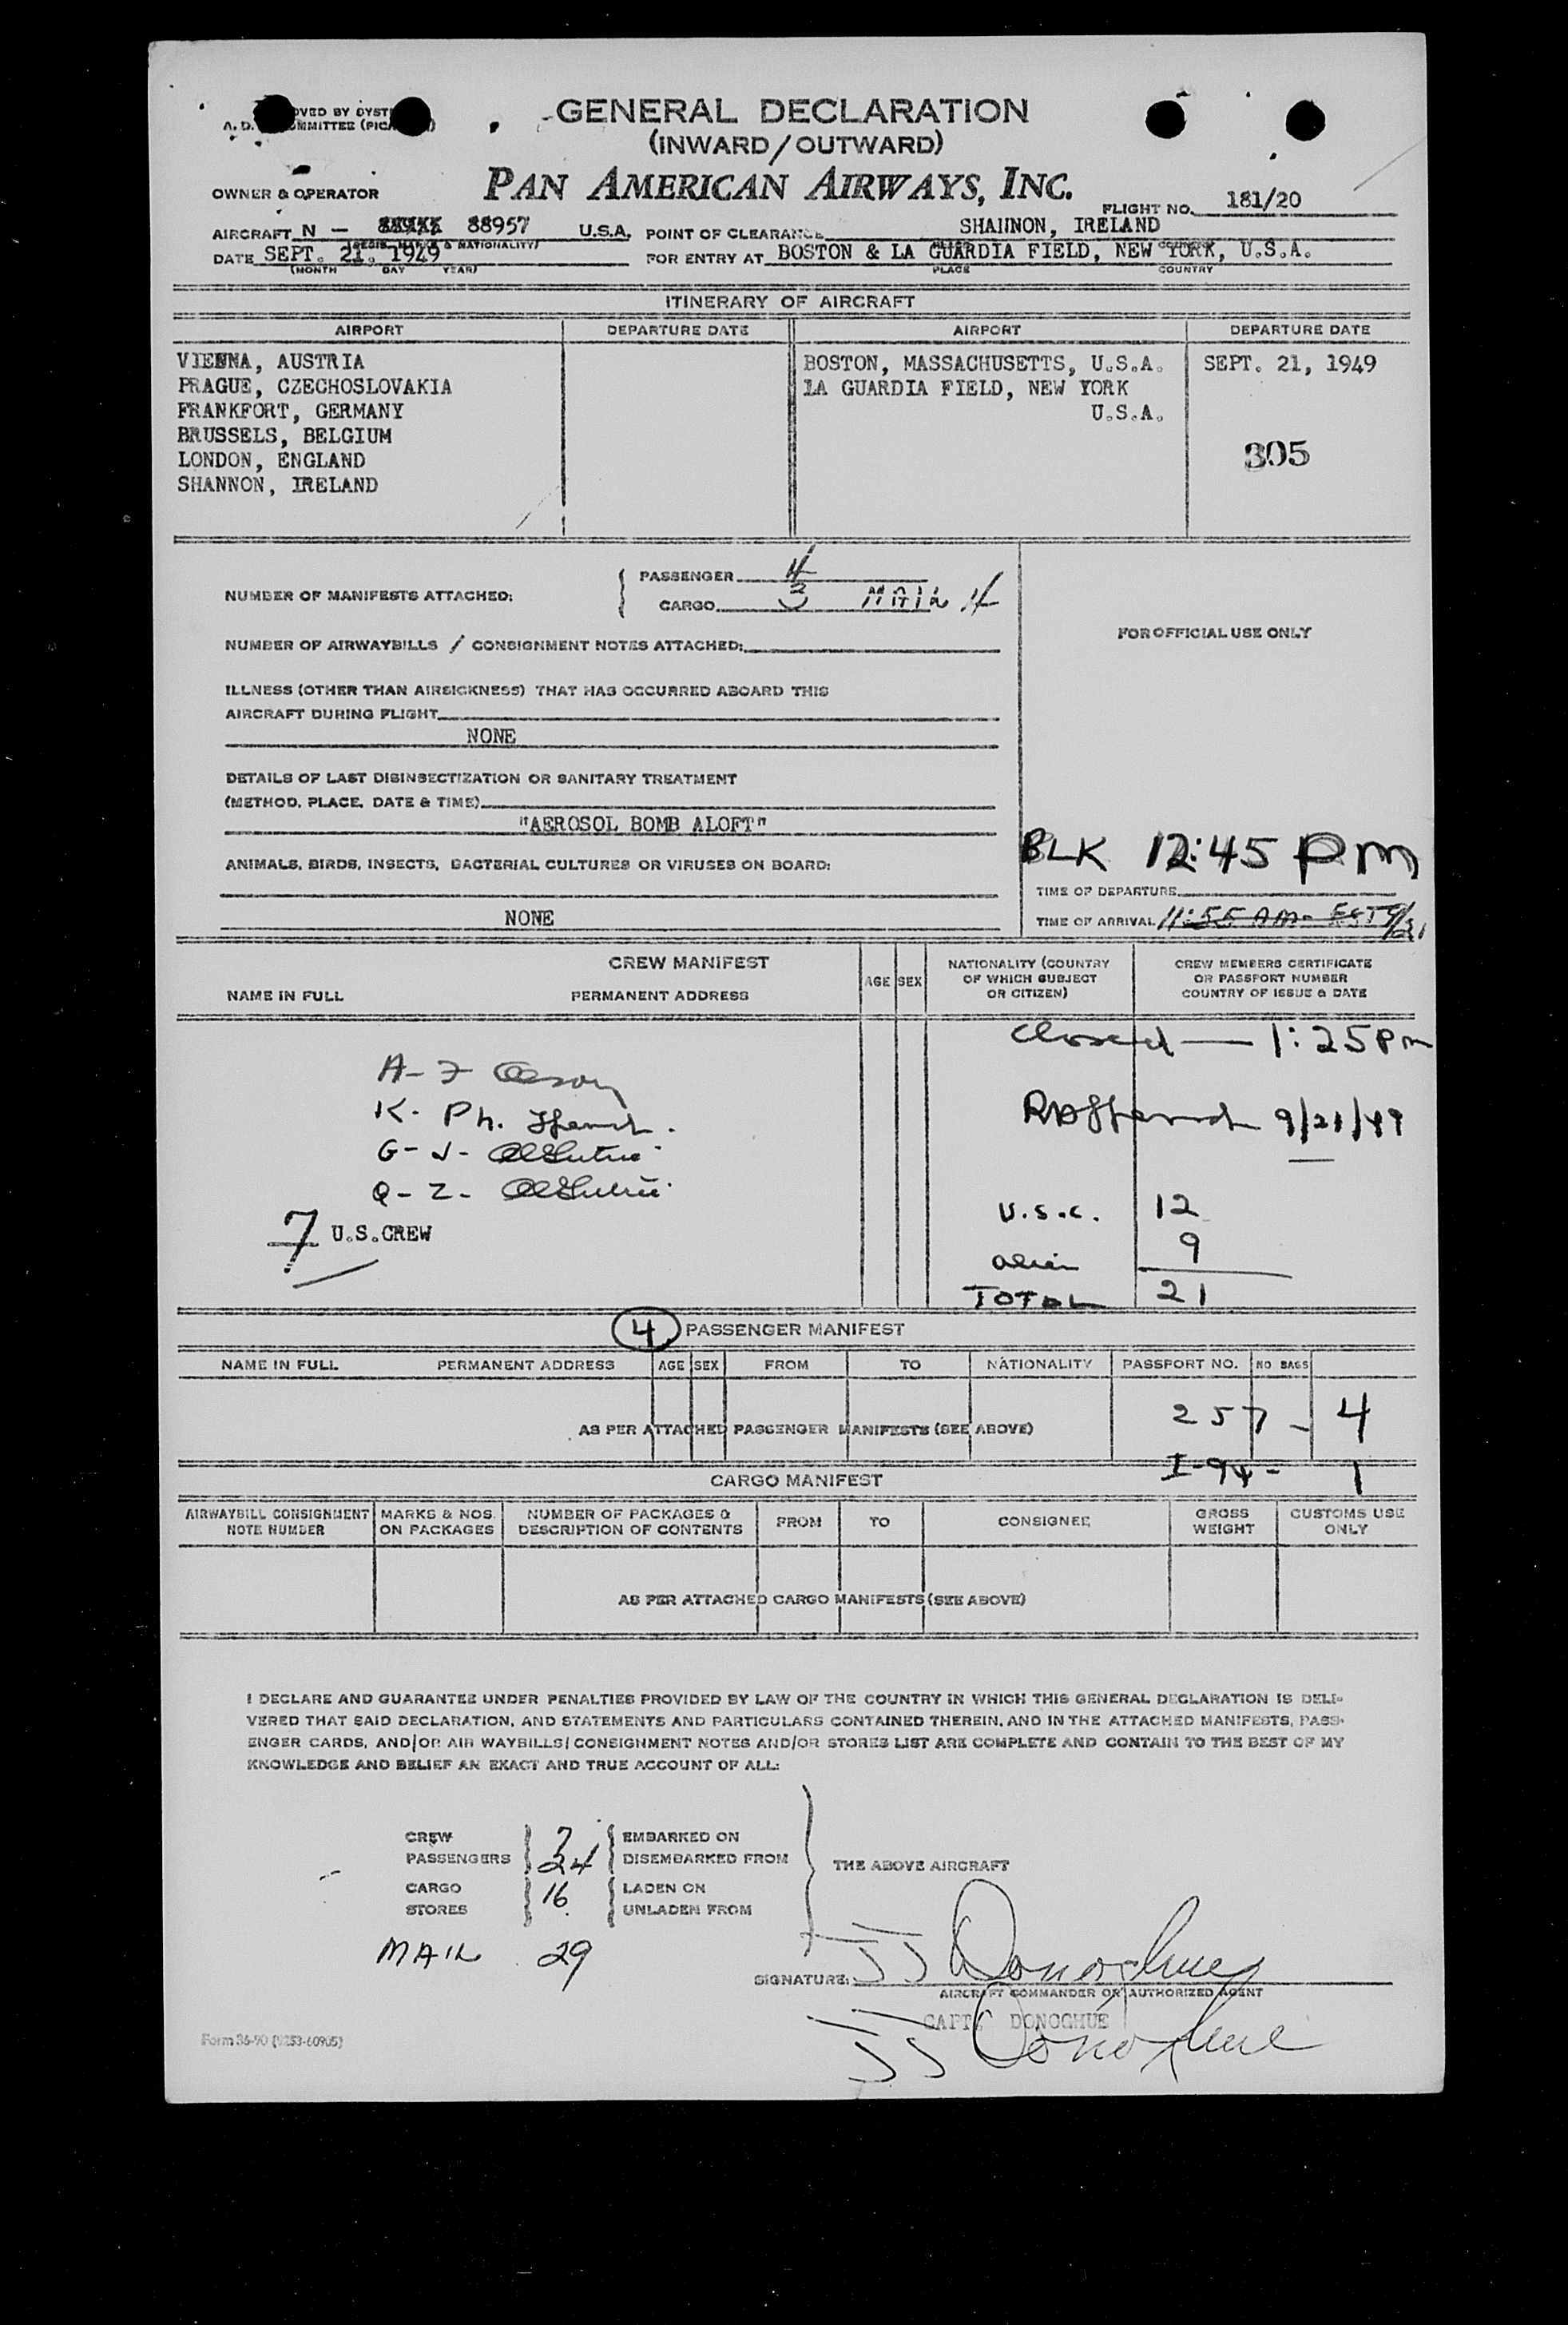 GENERAL DECLARATION
(INWARD/OUTWARD)
PAN AMERICAN AIRWAYS, INC.
OWNER & OPERATOR
FLIGHT NO. 181/20
AIRCRAFT N — 88957 U.S.A. POINT OF CLEARANCE SHANNON, IRELAND
DATE SEPT. 21, 1949 FOR ENTRY AT BOSTON & LA GUARDIA FIELD, NEW YORK, U.S.A.
(MONTH DAY YEAR) PLACE COUNTRY
ITINERARY OF AIRCRAFT
AIRPORT DEPARTURE DATE AIRPORT DEPARTURE DATE
VIENNA, AUSTRIA BOSTON, MASSACHUSETTS, U.S.A. SEPT. 21, 1949
PRAGUE, CZECHOSLOVAKIA LA GUARDIA FIELD, NEW YORK
FRANKFORT, GERMANY U.S.A.
BRUSSELS, BELGIUM
LONDON, ENGLAND 305
SHANNON, IRELAND
PASSENGER 4
NUMBER OF MANIFESTS ATTACHED:
CARGO 3 MAIL 4
FOR OFFICIAL USE ONLY
NUMBER OF AIRWAYBILLS / CONSIGNMENT NOTES ATTACHED:
ILLNESS (OTHER THAN AIRSICKNESS) THAT HAS OCCURRED ABOARD THIS
AIRCRAFT DURING FLIGHT
NONE
DETAILS OF LAST DISINSECTIZATION OR SANITARY TREATMENT
(METHOD, PLACE, DATE & TIME)
"AEROSOL BOMB ALOFT"
BLK 12:45 PM
ANIMALS, BIRDS, INSECTS, BACTERIAL CULTURES OR VIRUSES ON BOARD:
TIME OF DEPARTURE
NONE
TIME OF ARRIVAL 11:55 AM- EST 9/21
CREW MANIFEST
NAME IN FULL PERMANENT ADDRESS AGE SEX NATIONALITY (COUNTRY OF WHICH SUBJECT OR CITIZEN) CREW MEMBERS CERTIFICATE OR PASSPORT NUMBER COUNTRY OF ISSUE & DATE
Closed — 1:25 Pm
A-F
K- Ph.
9/21/49
G-J-
Q-Z-
U.S.C. 12
7 U.S.CREW
alien 9
TOTAL 21
4 PASSENGER MANIFEST
NAME IN FULL PERMANENT ADDRESS AGE SEX FROM TO NATIONALITY PASSPORT NO. NO BAGS
257 - 4
AS PER ATTACHED PASSENGER MANIFESTS (SEE ABOVE)
I-94 - 1
CARGO MANIFEST
AIRWAYBILL CONSIGNMENT NOTE NUMBER MARKS & NOS. ON PACKAGES NUMBER OF PACKAGES & DESCRIPTION OF CONTENTS FROM TO CONSIGNEE GROSS WEIGHT CUSTOMS USE ONLY
AS PER ATTACHED CARGO MANIFESTS (SEE ABOVE)
I DECLARE AND GUARANTEE UNDER PENALTIES PROVIDED BY LAW OF THE COUNTRY IN WHICH THIS GENERAL DECLARATION IS DELI-
VERED THAT SAID DECLARATION, AND STATEMENTS AND PARTICULARS CONTAINED THEREIN, AND IN THE ATTACHED MANIFESTS, PASS-
ENGER CARDS, AND/OR AIR WAYBILLS/CONSIGNMENT NOTES AND/OR STORES LIST ARE COMPLETE AND CONTAIN TO THE BEST OF MY
KNOWLEDGE AND BELIEF AN EXACT AND TRUE ACCOUNT OF ALL:
CREW 7 EMBARKED ON
PASSENGERS 24 DISEMBARKED FROM
THE ABOVE AIRCRAFT
CARGO 16 LADEN ON
STORES UNLADEN FROM
MAIL 29
SIGNATURE: JJ Donoghue
AIRCRAFT COMMANDER OR AUTHORIZED AGENT
CAPT. DONOGHUE
JJ Donoghue